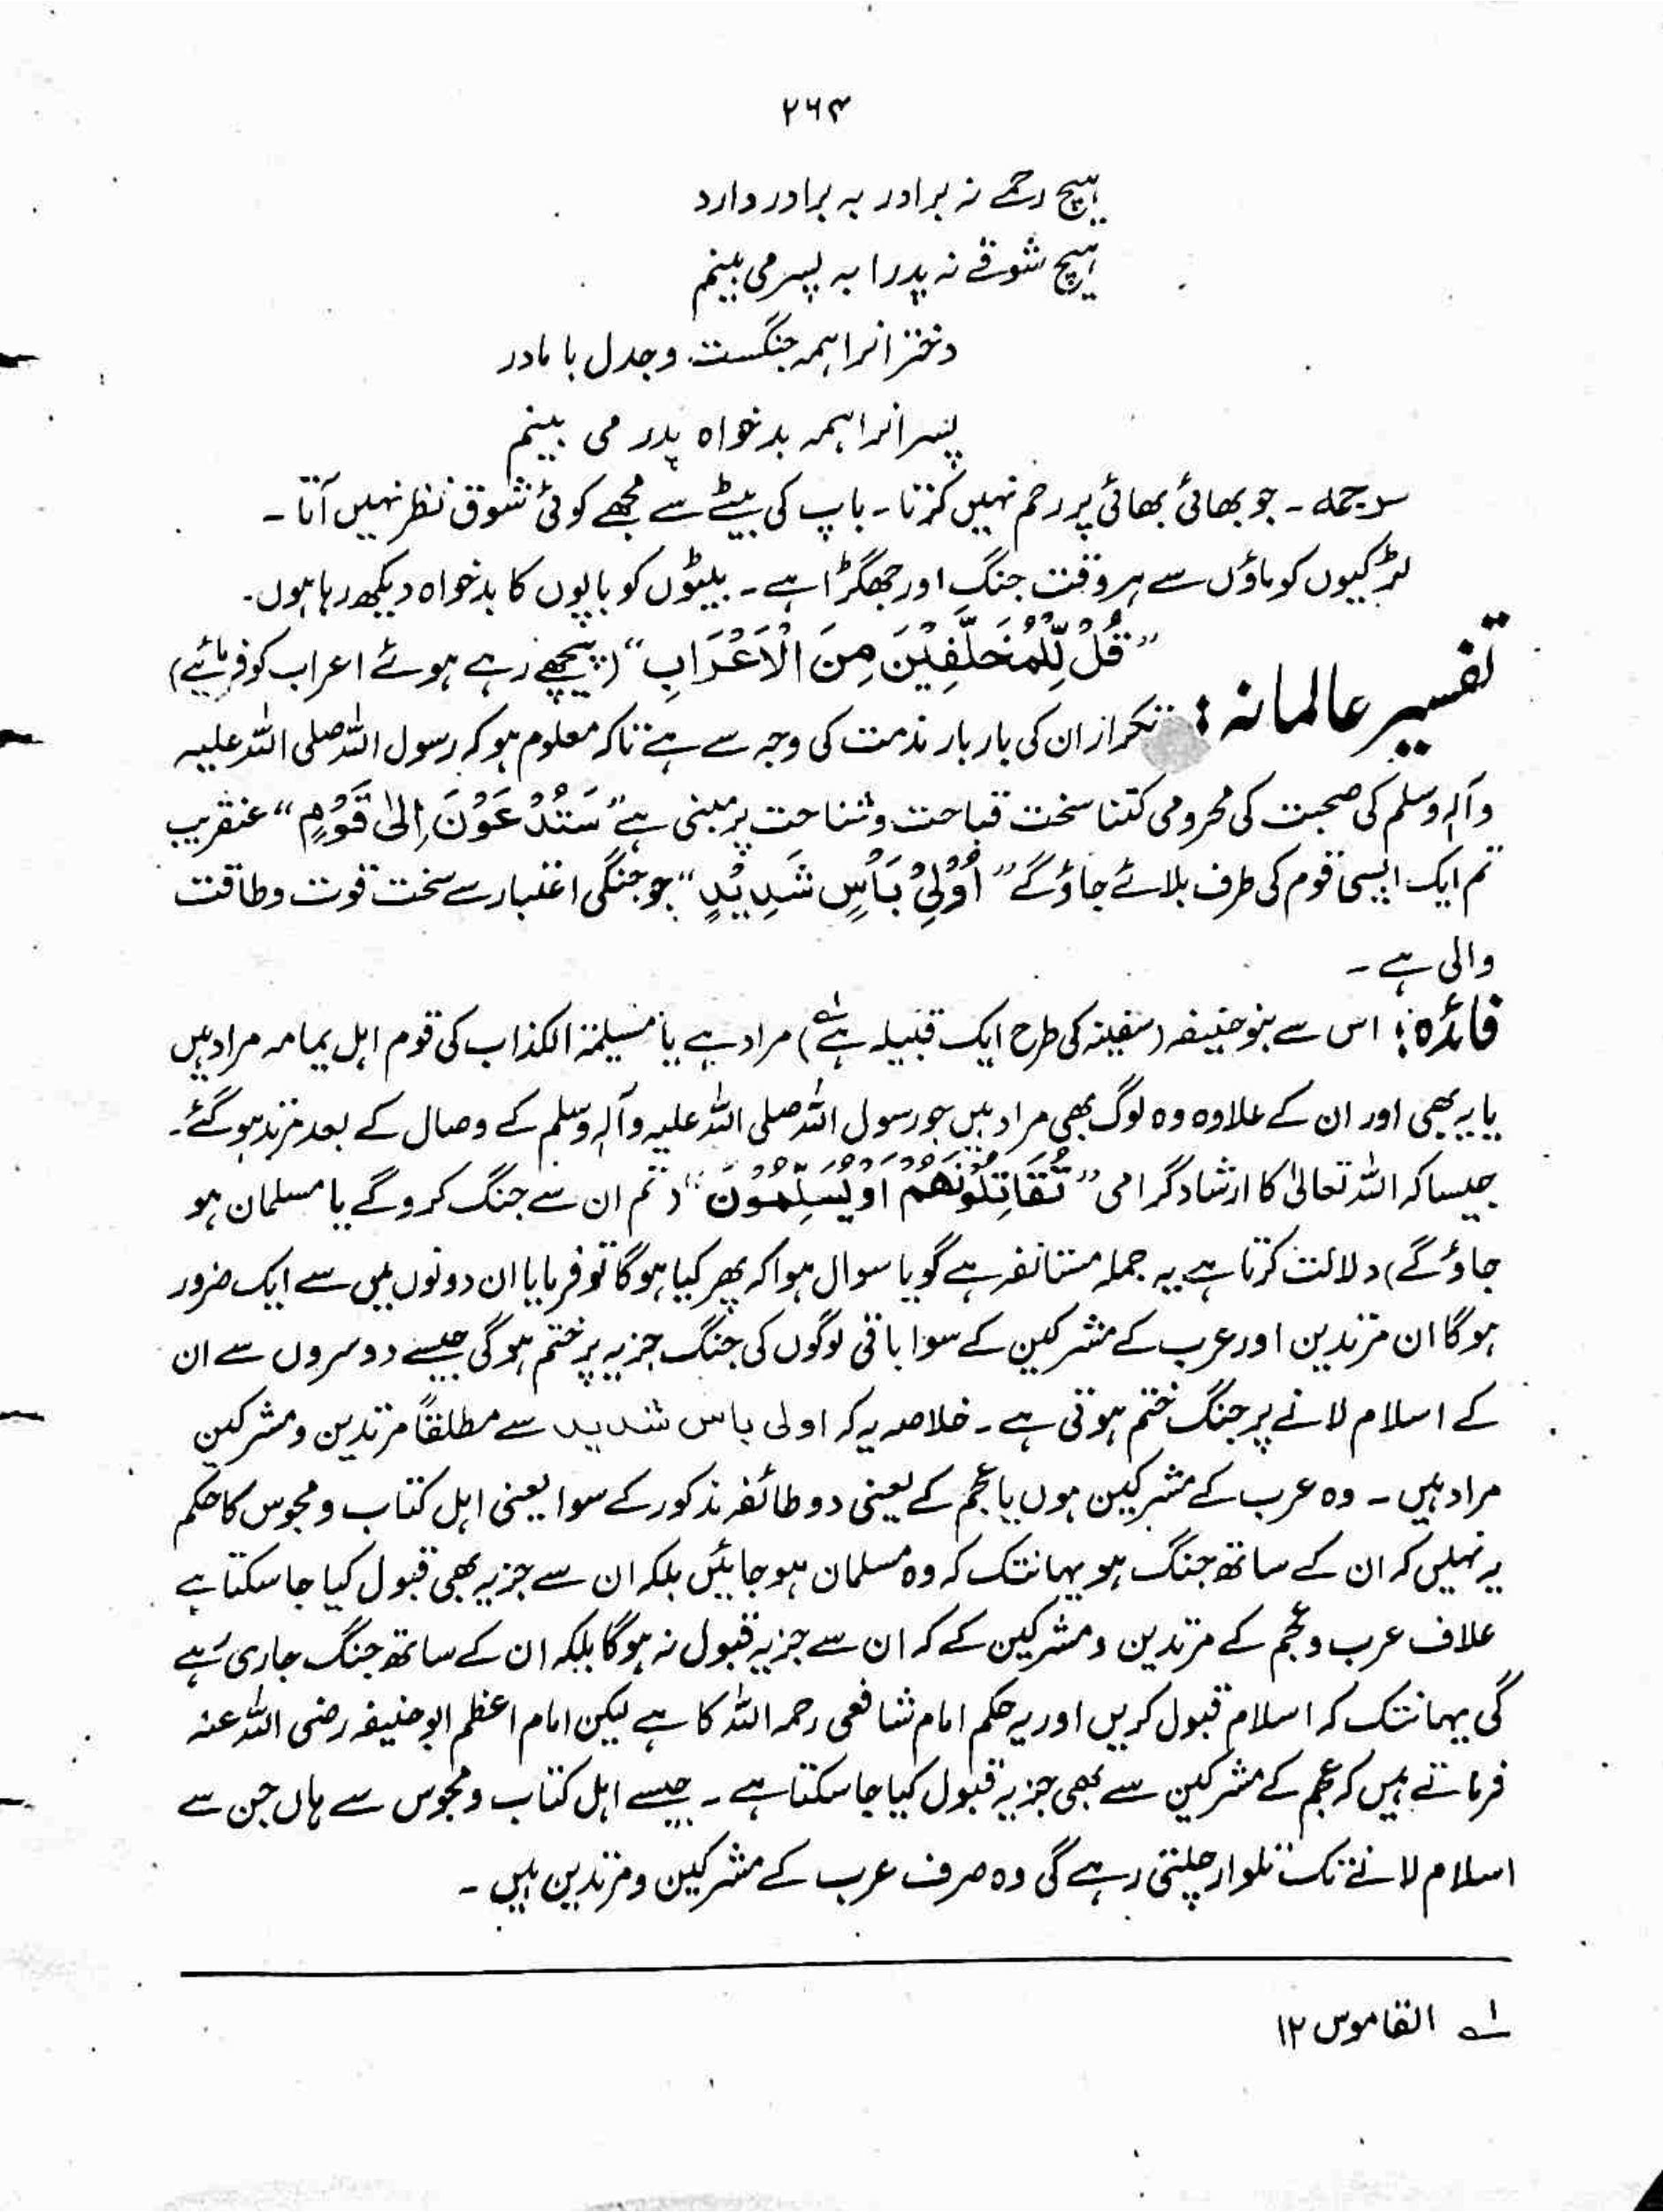 ۲۶۴
ہیچ رحمے نہ برادر بہ برادر دارد
ہیچ شوقے نہ پدر را بہ پسر می بینم
دختر انرا ہمہ جنگست وجدل با مادر
پسر انرا ہمہ بدخواہ پدر می بینم
ترجمہ ۔ جو بھائی بھائی پر رحم نہیں کرتا ۔ باپ کی بیٹے سے مجھے کوئی شوق نظر نہیں آتا ۔
لڑکیوں کو ماؤں سے ہر وقت جنگ اور جھگڑا ہے ۔ بیٹوں کو باپوں کا بدخواہ دیکھ رہا ہوں ۔
تفسیر عالمانہ : ”قُلْ لِّلْمُخَلَّفِیْنَ مِنَ الْاَعْرَابِ“ (پیچھے رہے ہوئے اعراب کو فرمائیے)
تکرار ان کی بار بار مذمت کی وجہ سے ہے تاکہ معلوم ہو کہ رسول اللہ صلی اللہ علیہ
وآلہ وسلم کی صحبت کی محرومی کتنا سخت قباحت وشناحت پر مبنی ہے ”سَتُدْعَوْنَ اِلیٰ قَوْمٍ“ عنقریب
تم ایک ایسی قوم کی طرف بلائے جاؤ گے ”اُوْلِیْ بَاْسٍ شَدِیْدٍ“ جو جنگی اعتبار سے سخت قوت وطاقت
والی ہے ۔
فائدہ : اس سے بنو حنیفہ (سفینہ کی طرح ایک قبیلہ ہے ۱؎) مراد ہے یا مسیلمۃ الکذاب کی قوم اہل یمامہ مراد ہیں
یا یہ بھی اور ان کے علاوہ وہ لوگ بھی مراد ہیں جو رسول اللہ صلی اللہ علیہ وآلہ وسلم کے وصال کے بعد مرتد ہو گئے ۔
جیسا کہ اللہ تعالیٰ کا ارشاد گرامی ”تُقَاتِلُوْنَھُمْ اَوْ یُسْلِمُوْنَ“ (تم ان سے جنگ کرو گے یا مسلمان ہو
جاؤ گے) دلالت کرتا ہے یہ جملہ مستانفہ ہے گویا سوال ہوا کہ پھر کیا ہو گا تو فرمایا ان دونوں میں سے ایک ضرور
ہو گا ان مرتدین اور عرب کے مشرکین کے سوا باقی لوگوں کی جنگ جزیہ پر ختم ہو گی جیسے دوسروں سے ان
کے اسلام لانے پر جنگ ختم ہوتی ہے ۔ خلاصہ یہ کہ اولی باس شدید سے مطلقاً مرتدین و مشرکین
مراد ہیں ۔ وہ عرب کے مشرکین ہوں یا عجم کے یعنی دو طائفہ مذکور کے سوا یعنی اہل کتاب و مجوس کا حکم
یہ نہیں کہ ان کے ساتھ جنگ ہو یہانتک کہ وہ مسلمان ہو جائیں بلکہ ان سے جزیہ بھی قبول کیا جا سکتا ہے
علاف عرب و عجم کے مرتدین و مشرکین کے کہ ان سے جزیہ قبول نہ ہو گا بلکہ ان کے ساتھ جنگ جاری رہے
گی یہانتک کہ اسلام قبول کریں اور یہ حکم امام شافعی رحمہ اللہ کا ہے لیکن امام اعظم ابوحنیفہ رضی اللہ عنہ
فرماتے ہیں کہ عجم کے مشرکین سے بھی جزیہ قبول کیا جا سکتا ہے ۔ جیسے اہل کتاب و مجوس سے ہاں جن سے
اسلام لانے تک تلوار چلتی رہے گی وہ صرف عرب کے مشرکین و مرتدین ہیں ۔
۱؎ القاموس ۱۲